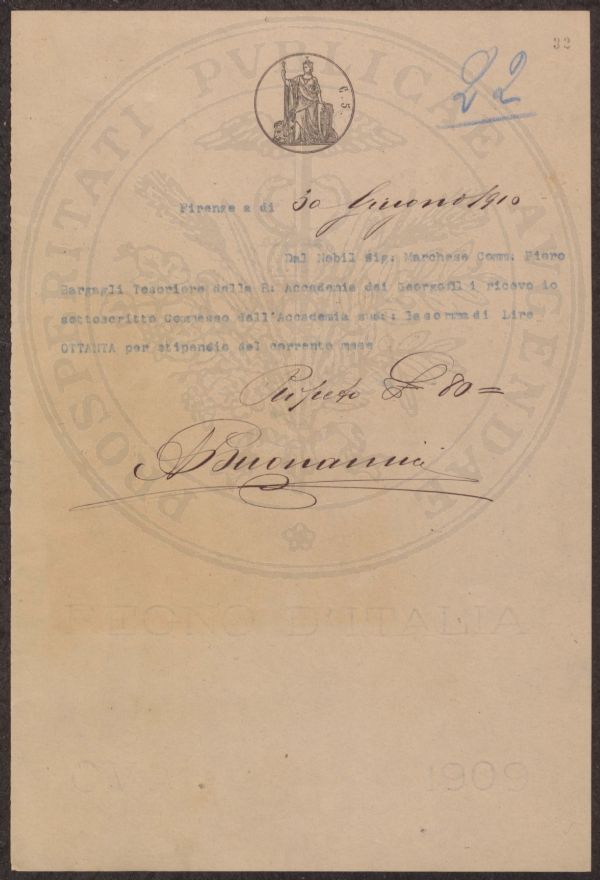 32
22
C. 5.
PROSPERITATI PVBLICAE AVGENDAE
Firenze a di 30 Giugno 1910
Dal Nobil Sig: Marchese Comm. Piero
Bargagli Tesoriere della R: Accademia dei Georgofili ricevo io
sottoscritto Commesso dell'Accademia sud: la somma di Lire
OTTANTA per stipendio del corrente mese
Ripeto £ 80 =
A Buonanni
REGNO D'ITALIA
1909